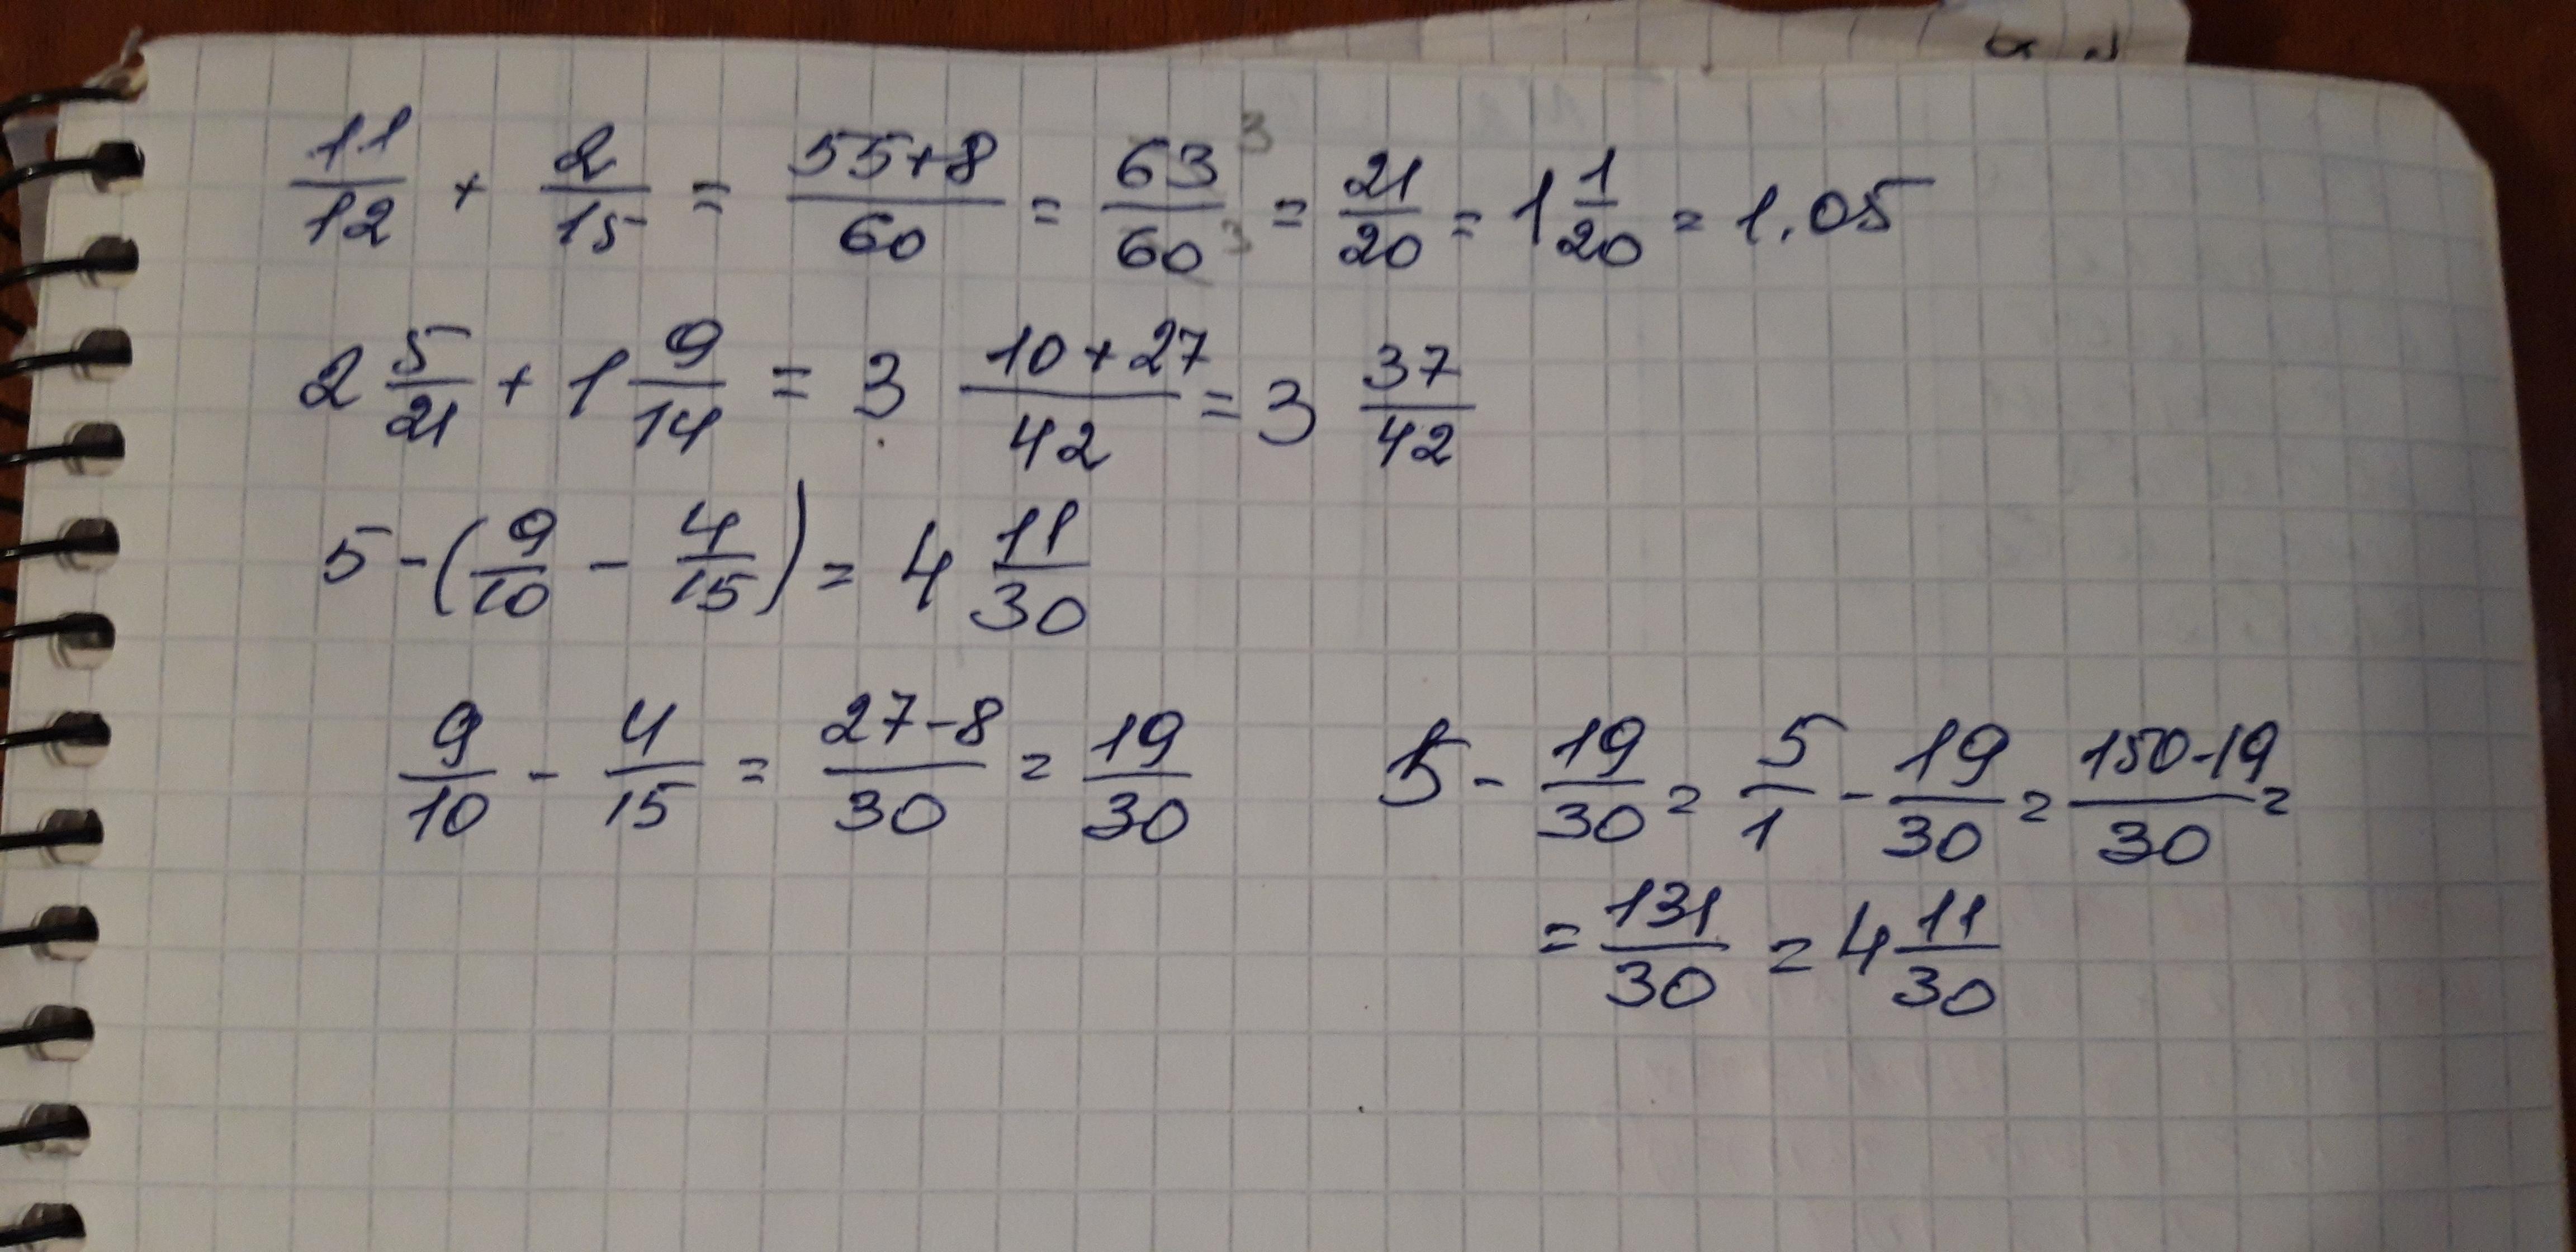 11/12 + 2/15 = 55+8/60 = 63/60 3 3 = 21/20 = 1 1/20 = 1.05
2 5/21 + 1 9/14 = 3 10+27/42 = 3 37/42
5 - (9/10 - 4/15) = 4 11/30
9/10 - 4/15 = 27-8/30 = 19/30
5 - 19/30 = 5/1 - 19/30 = 150-19/30 =
= 131/30 = 4 11/30